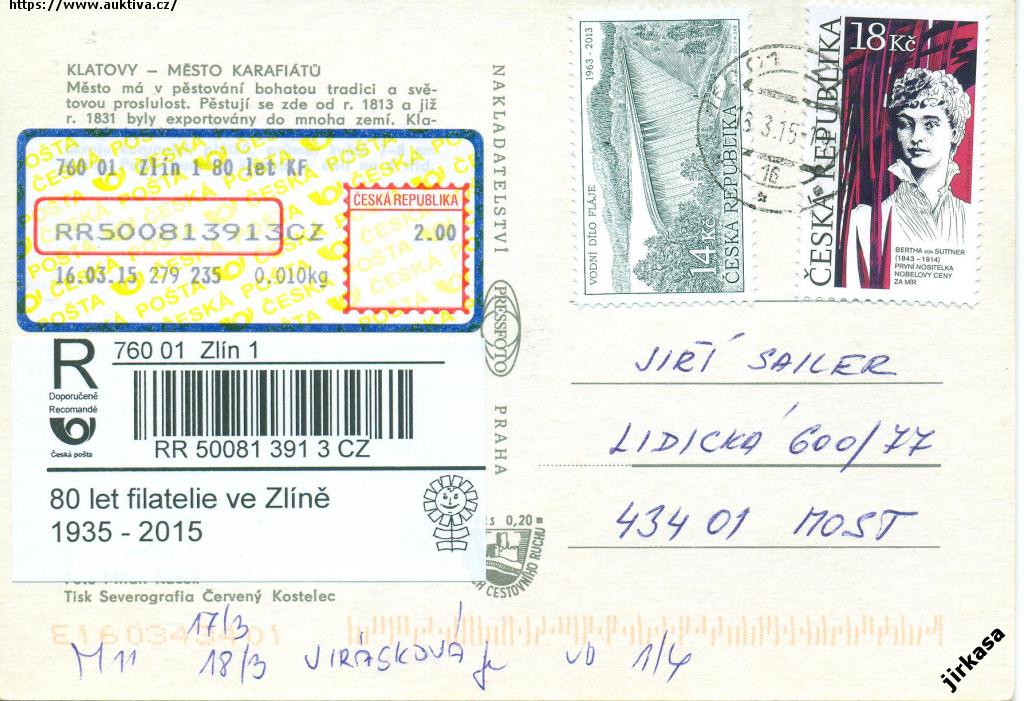 https://www.auktiva.cz/
KLATOVY – MĚSTO KARAFIÁTŮ
Město má v pěstování bohatou tradici a svě-
tovou proslulost. Pěstují se zde od r. 1813 a již
r. 1831 byly exportovány do mnoha zemí. Kla-
760 01 Zlín 1 80 let KF
ČESKÁ REPUBLIKA
RR500813913CZ
2.00
16.03.15 279 235 0.010kg
R
760 01 Zlín 1
Doporučeně
Recomandé
Česká pošta
RR 50081 391 3 CZ
80 let filatelie ve Zlíně
1935 - 2015
Tisk Severografia Červený Kostelec
NAKLADATELSTVÍ
PRESSFOTO
PRAHA
0,20
CESTOVNÍHO RUCHU
1963 - 2013
VODNÍ DÍLO FLÁJE
14 Kč
ČESKÁ REPUBLIKA
3.15
16
18 Kč
ČESKÁ REPUBLIKA
BERTHA von SUTTNER
(1843 – 1914)
PRVNÍ NOSITELKA
NOBELOVY CENY
ZA MÍR
JIŘÍ SAILER
LIDICKÁ 600/77
434 01 MOST
17/3
M11 18/3 JIRÁSKOVÁ VD 1/4
jirkasa